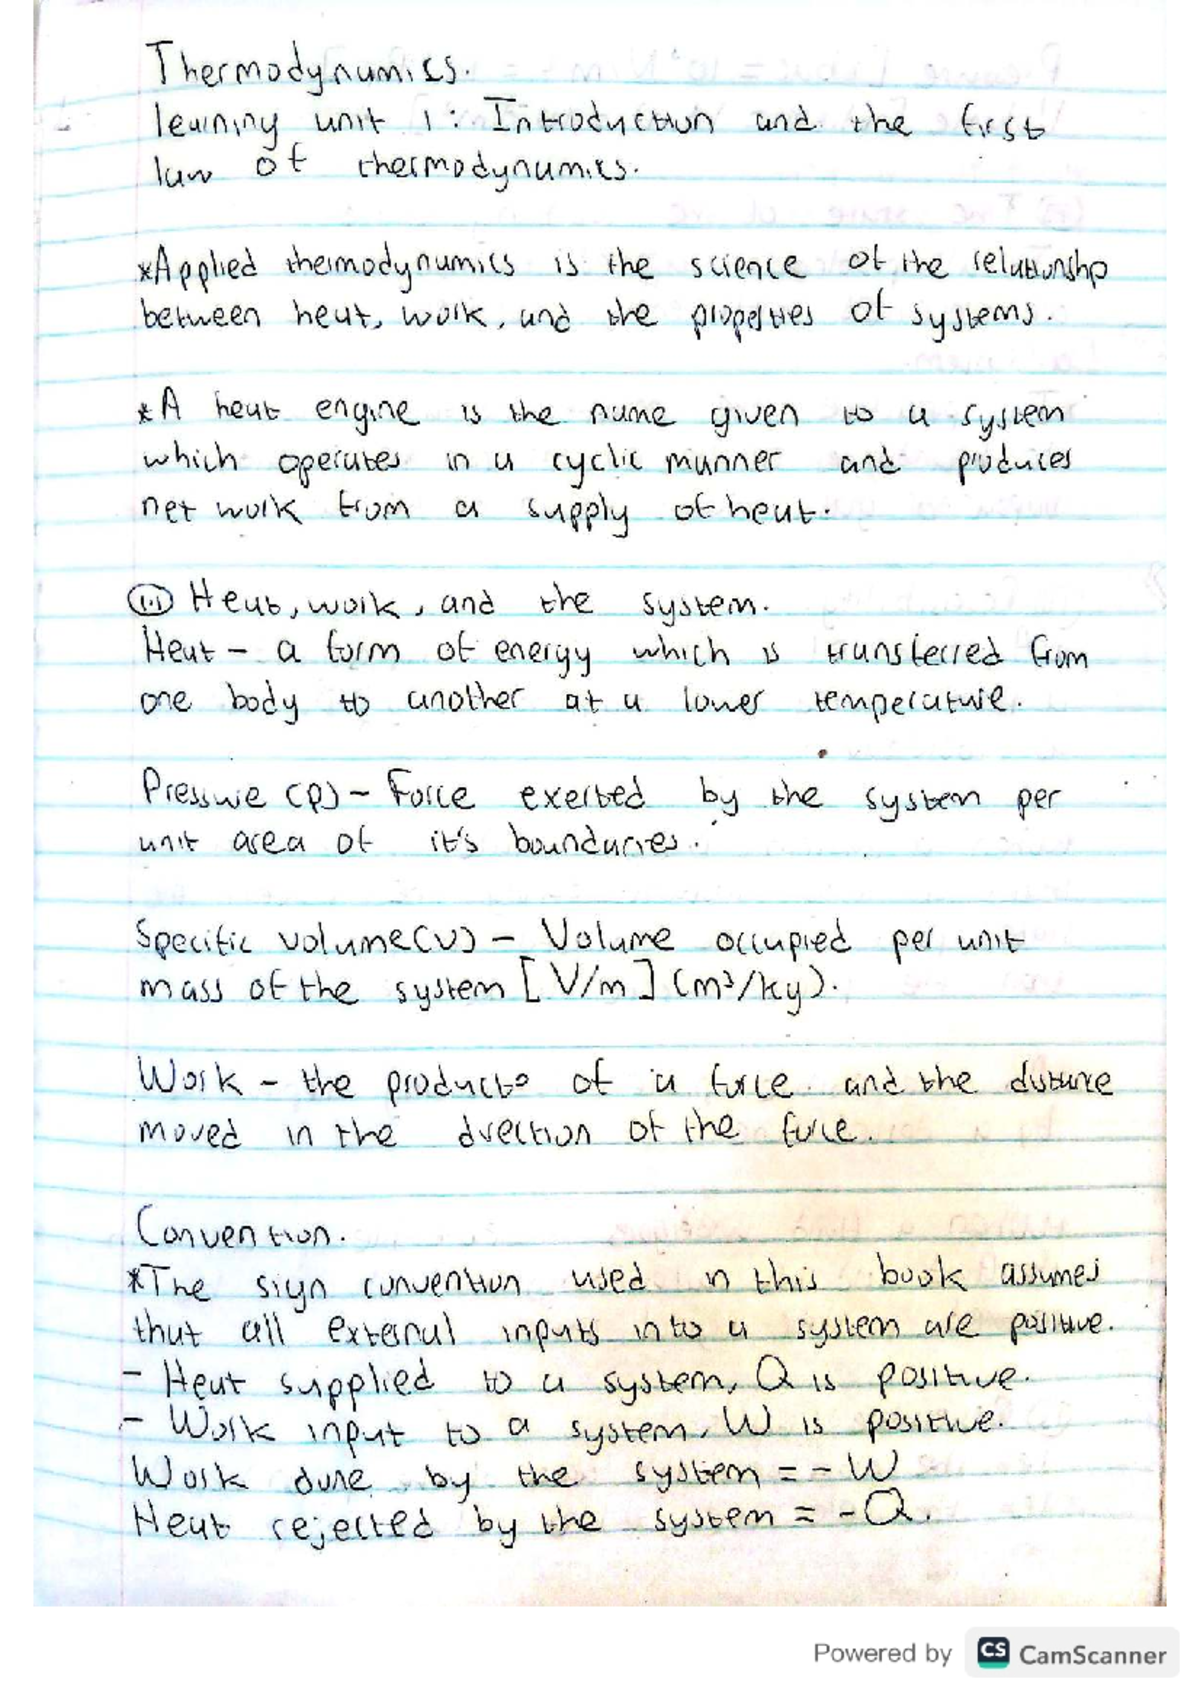 Thermodynamics.
learning unit 1: Introduction and the first
law of thermodynamics.
*Applied thermodynamics is the science of the relationship
between heat, work, and the properties of systems.
*A heat engine is the name given to a system
which operates in a cyclic manner and produces
net work from a supply of heat.
(1.1) Heat, work, and the system.
Heat - a form of energy which is transferred from
one body to another at a lower temperature.
Pressure (P) - Force exerted by the system per
unit area of it's boundaries.
Specific volume (v) - Volume occupied per unit
mass of the system [V/m] (m³/kg).
Work - the product of a force and the distance
moved in the direction of the force.
Convention.
*The sign convention used in this book assumes
that all external inputs into a system are positive.
- Heat supplied to a system, Q is positive.
- Work input to a system, W is positive.
Work done by the system = - W
Heat rejected by the system = - Q.
Powered by CS CamScanner